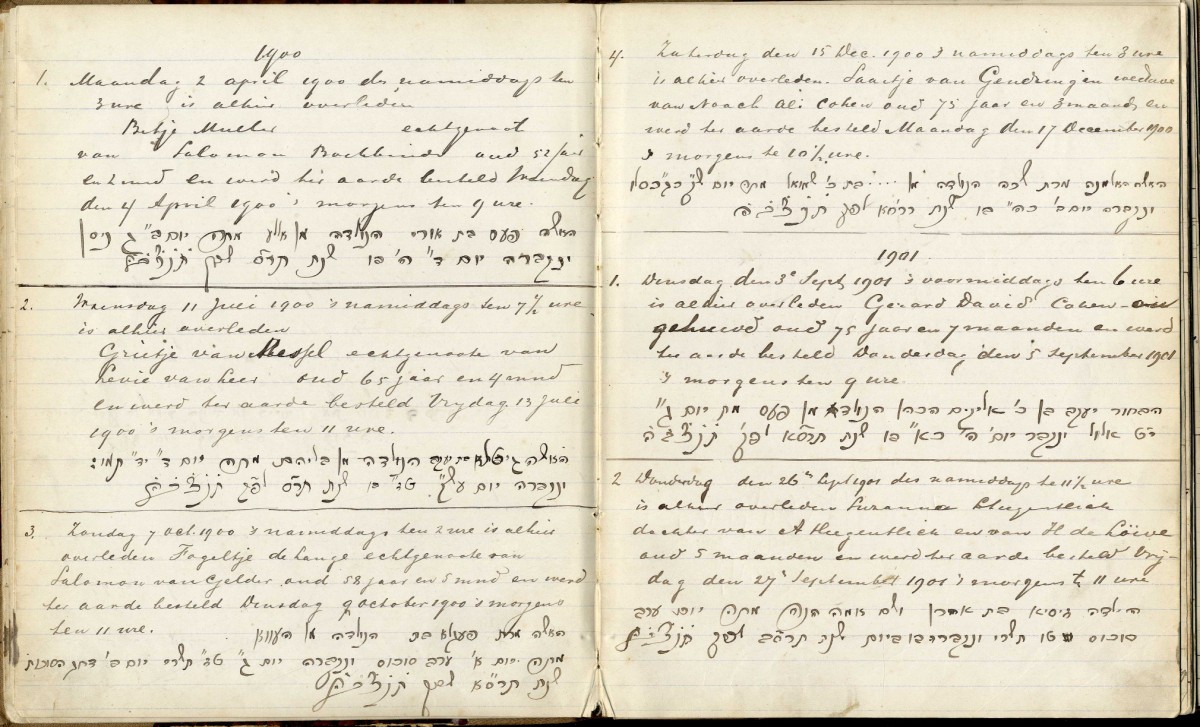 1900
1. Maandag 2 april 1900 des namiddags ten
3 ure is alhier overleden
Betje Muller echtgenoot
van Salomon Boekbinder oud 52 jaar
en 2 mnd en werd ter aarde besteld Woensdag
den 4 April 1900 's morgens ten 9 ure.
האשה בת אורי הנולדה מן אלע מתה יום ב" ג ניסן
ונקברה יום ד" ה' בו שנת תר"ס לפ"ק תנצב"ה
2. Woensdag 11 Juli 1900 's namiddags ten 7 1/2 ure
is alhier overleden
Grietje van Hessel echtgenoote van
Levie van Leer oud 65 jaar en 4 mnd
en werd ter aarde besteld Vrydag 13 Juli
1900 's morgens ten 11 ure.
האשה גיטלא בת הנולדה מן מתה יום ד" יד" תמוז
ונקברה יום עש"ק טז" בו שנת תר"ס לפ"ק תנצב"ה
3. Zondag 7 oct. 1900 's namiddags ten 2 ure is alhier
overleden Fogeltje de Lange echtgenoote van
Salomon van Gelder oud 58 jaar en 5 mnd en werd
ter aarde besteld Dinsdag 9 October 1900 's morgens
ten 11 ure.
האשה מרת פעגלא בת הנולדה מן
מתה יום א' ערב סוכות ונקברה יום ג" טז" תשרי יום ב' דחג הסוכות
שנת תרס"א לפ"ק תנצב"ה
4. Zaterdag den 15 Dec. 1900 's namiddags ten 3 ure
is alhier overleden. Saartje van Gendringen weduwe
van Noach Ali Cohen oud 75 jaar en 3 maand en
werd ter aarde besteld Maandag den 17 December 1900
's morgens te 10 1/2 ure.
האשה האלמנה מרת שרה הנולדה מן ..... בת כ' שמואל מתה יום ש"ק כג" כסלו
ונקברה יום ב' כה" בו שנת תרס"א לפ"ק תנצב"ה
1901
1. Dinsdag den 3e Sept 1901 's voormiddags ten 6 ure
is alhier overleden Gerard David Cohen on
gehuwd oud 75 jaar en 7 maanden en werd
ter aarde besteld Donderdag den 5 September 1901
's morgens ten 9 ure.
הבחור יעקב בן כ' הכהן הנולד מן מת יום ג"
י"ט אלול ונקבר יום ה' כא" בו שנת תרס"א לפ"ק תנצב"ה
2 Donderdag den 26n Sept 1901 des namiddags te 11 1/2 ure
is alhier overleden Suzanna
dochter van A en van H de Löwe
oud 5 maanden en werd ter aarde besteld Vrij-
dag den 27n September 1901 's morgens t 11 ure
הילדה בת אהרן ושם אמה מתה יום ערב
סוכות טו תשרי ונקברה בו ביום שנת תרס"ב לפ"ק תנצב"ה